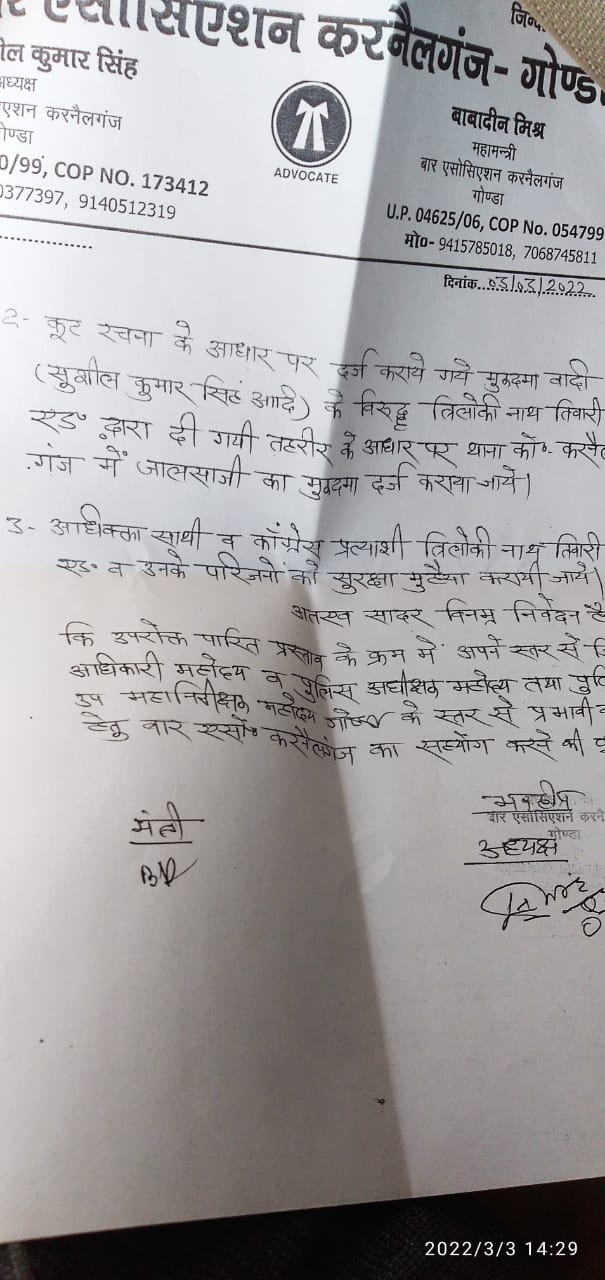 र एसोसिएशन करनैलगंज- गोण्डा
जि
ील कुमार सिंह
अध्यक्ष
एशन करनैलगंज
गोण्डा
0/99, COP NO. 173412
0377397, 9140512319
ADVOCATE
बाबादीन मिश्र
महामन्त्री
बार एसोसिएशन करनैलगंज
गोण्डा
U.P. 04625/06, COP No. 054799
मो०- 9415785018, 7068745811
दिनांक..03/03/2022
2- कूट रचना के आधार पर दर्ज कराये गये मुकदमा वादी
(सुशील कुमार सिहं आदि) के विरुद्ध त्रिलोकी नाथ तिवारी
एड० द्वारा दी गयी तहरीर के आधार पर थाना को०- करनैल
गंज में जालसाजी का मुकदमा दर्ज कराया जाये।
3- अधिवक्ता साथी व काँग्रेस प्रत्याशी त्रिलोकी नाथ तिवारी
एड० व उनके परिजनों को सुरक्षा मुहैया करायी जाये।
अतएव सादर विनम्र निवेदन है
कि उपरोक्त पारित प्रस्ताव के क्रम में अपने स्तर से जि
अधिकारी महोदय व पुलिस अधीक्षक महोदय तथा पुलि
उप महानिरीक्षक महोदय गोण्डा के स्तर से प्रभावी क
हेतु बार एसो० करनैलगंज का सहयोग करने की कृ
मंत्री
भवदीय
बार एसोसिएशन करनै
गोण्डा
अध्यक्ष
2022/3/3 14:29